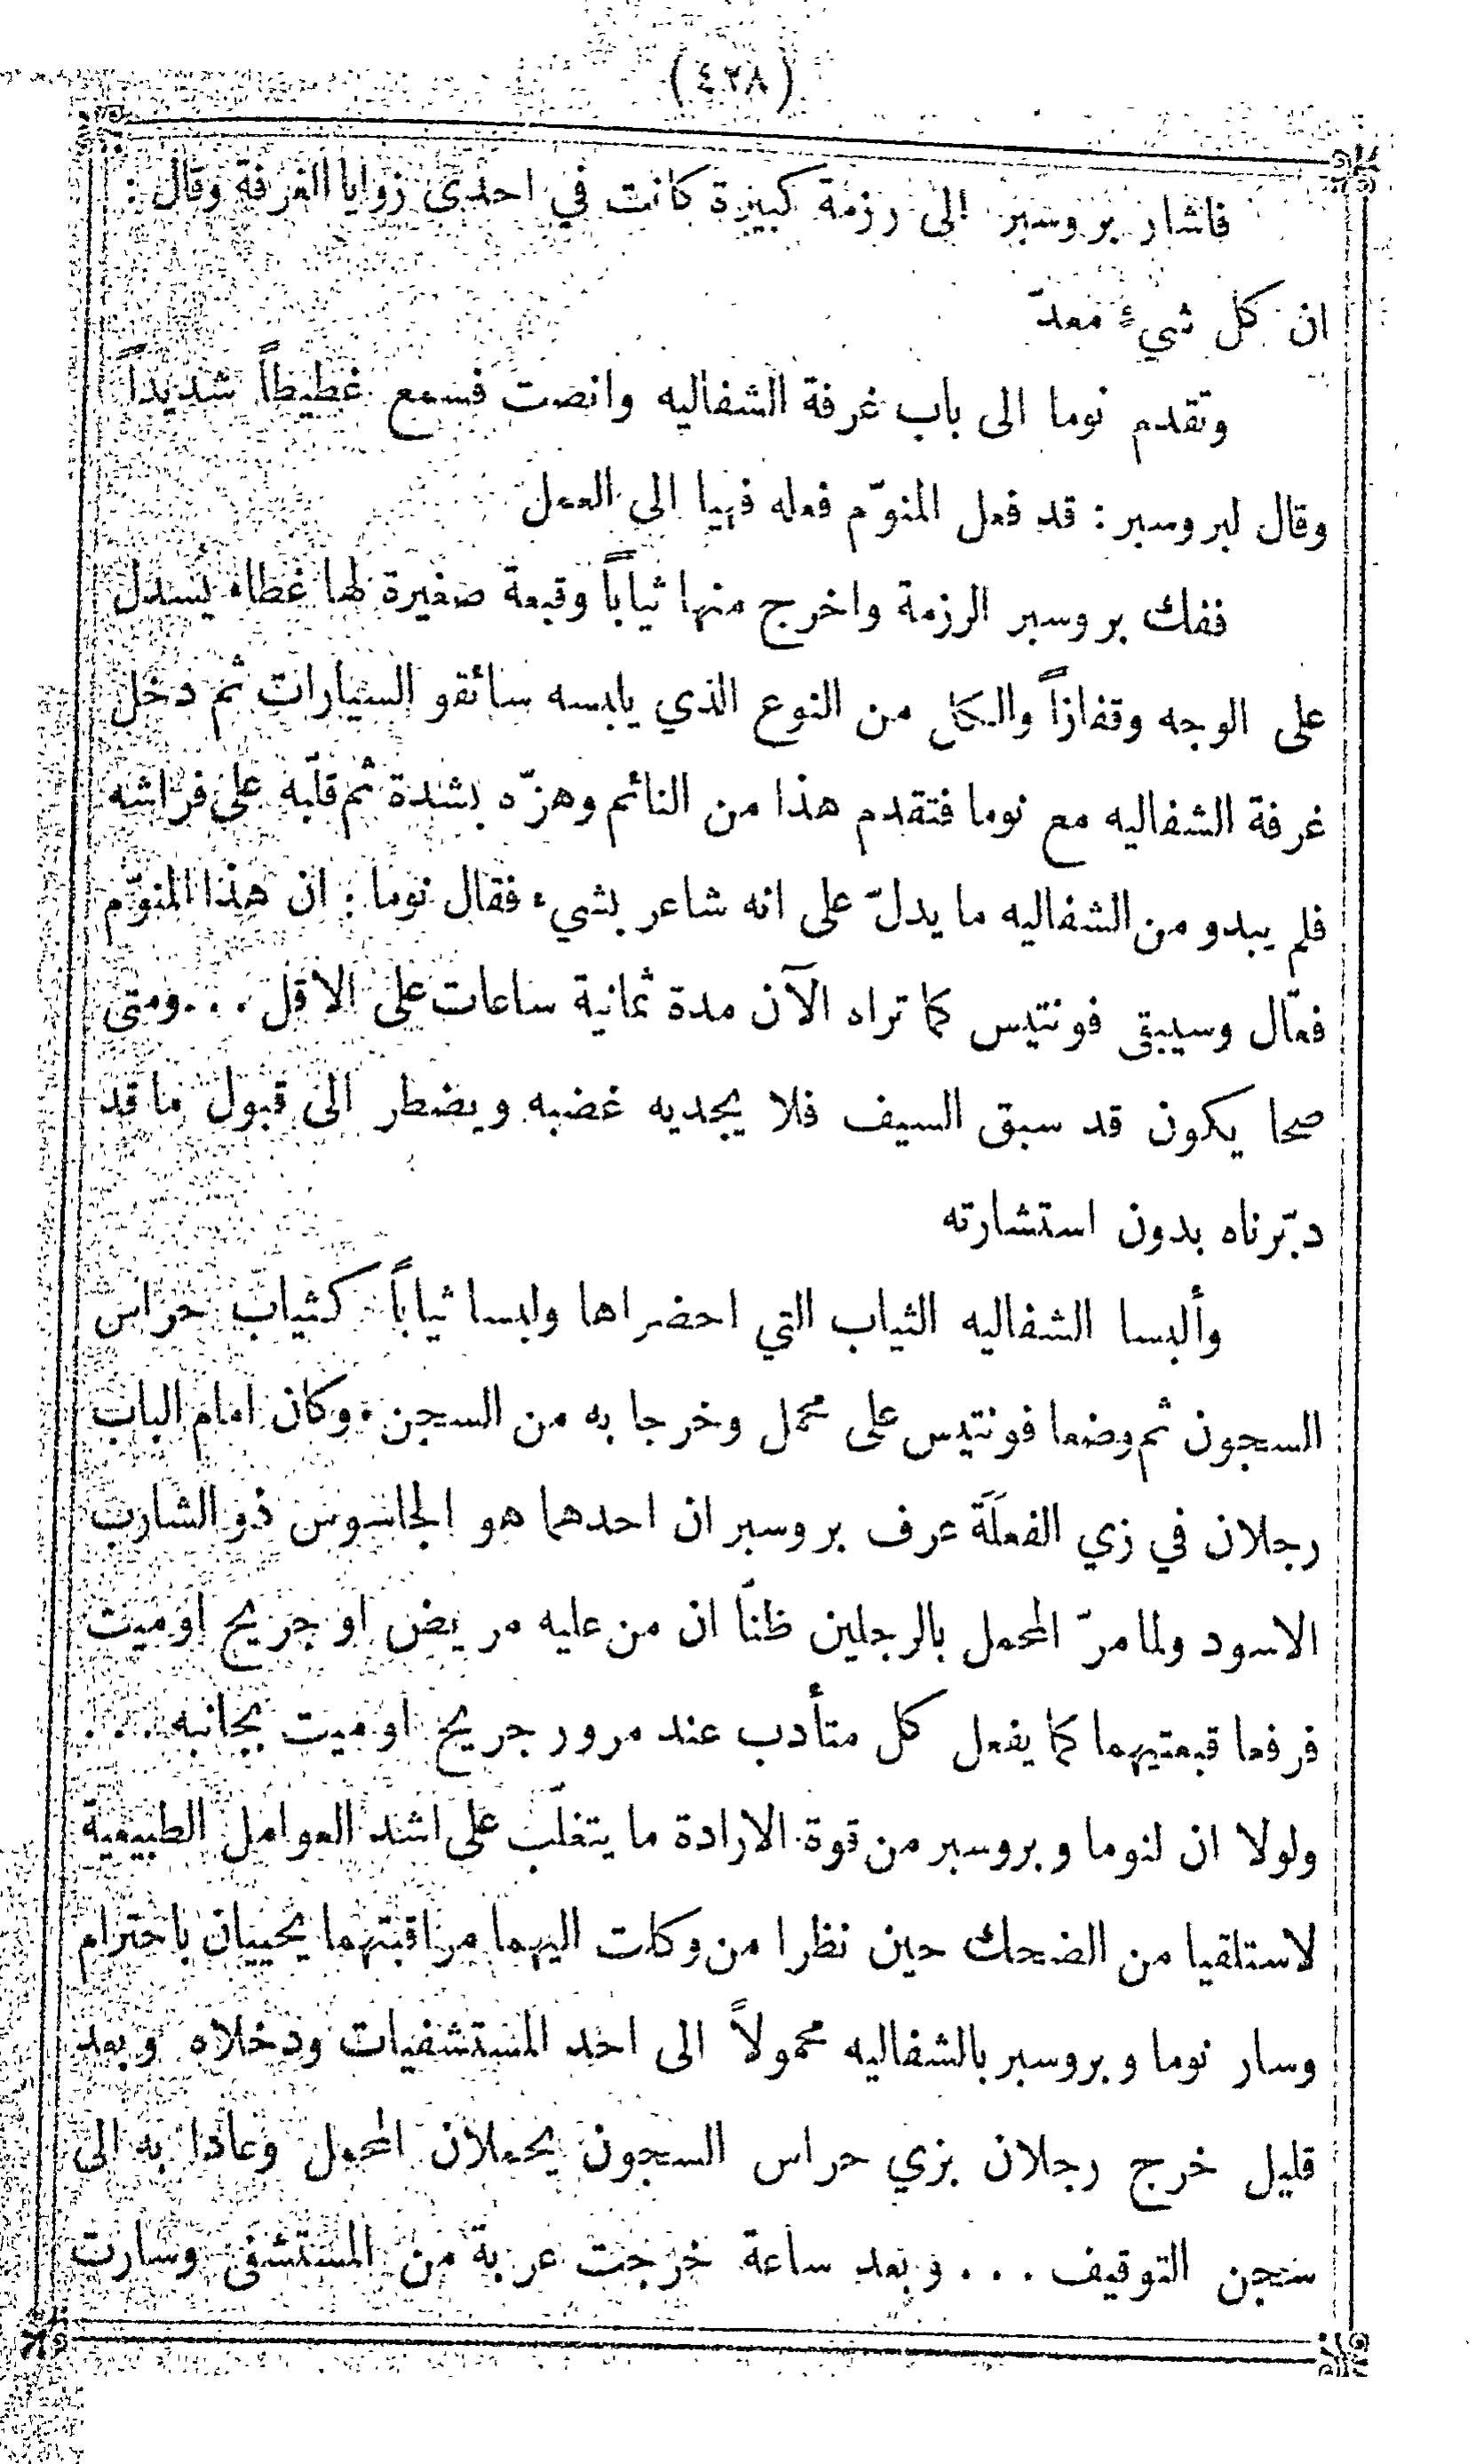 (٤٢٨)
فاشار بروسبر الى رزمة كبيرة كانت في احدى زوايا الغرفة وقال :
ان كل شيءٍ معدّ
وتقدم نوما الى باب غرفة الشفاليه وانصت فسمع غطيطاً شديداً
وقال لبروسبر : قد فعل المنوّم فعله فهيا الى العمل
ففك بروسبر الرزمة واخرج منها ثياباً وقبعة صغيرة لها غطاء يسدل
على الوجه وقفازاً والكل من النوع الذي يلبسه سائقو السيارات ثم دخل
غرفة الشفاليه مع نوما فتقدم هذا من النائم وهزّه بشدة ثم قلّبه على فراشه
فلم يبدو من الشفاليه ما يدلّ على انه شاعر بشيء فقال نوما : ان هذا المنوّم
فعّال وسيبقى فونتيس كما تراه الآن مدة ثمانية ساعات على الاقل . . . ومتى
صحا يكون قد سبق السيف فلا يجديه غضبه ويضطر الى قبول ما قد
دبّرناه بدون استشارته
وألبسا الشفاليه الثياب التي احضراها ولبسا ثياباً كثياب حراس
السجون ثم وضعا فونتيس على محمل وخرجا به من السجن . وكان امام الباب
رجلان في زي الفعلَة عرف بروسبر ان احدهما هو الجاسوس ذو الشارب
الاسود ولما مرّ المحمل بالرجلين ظنّا ان من عليه مريض او جريح او ميت
فرفعا قبعتيهما كما يفعل كل متأدب عند مرور جريح او ميت بجانبه . . .
ولولا ان لنوما وبروسبر من قوة الارادة ما يتغلّب على اشد العوامل الطبيعية
لاستلقيا من الضحك حين نظرا من وكلت اليهما مراقبتهما يحييان باحترام
وسار نوما وبروسبر بالشفاليه محمولاً الى احد المستشفيات ودخلاه وبعد
قليل خرج رجلان بزي حراس السجون يحملان المحمل وعادا به الى
سجن التوقيف . . . وبعد ساعة خرجت عربة من المستشفى وسارت